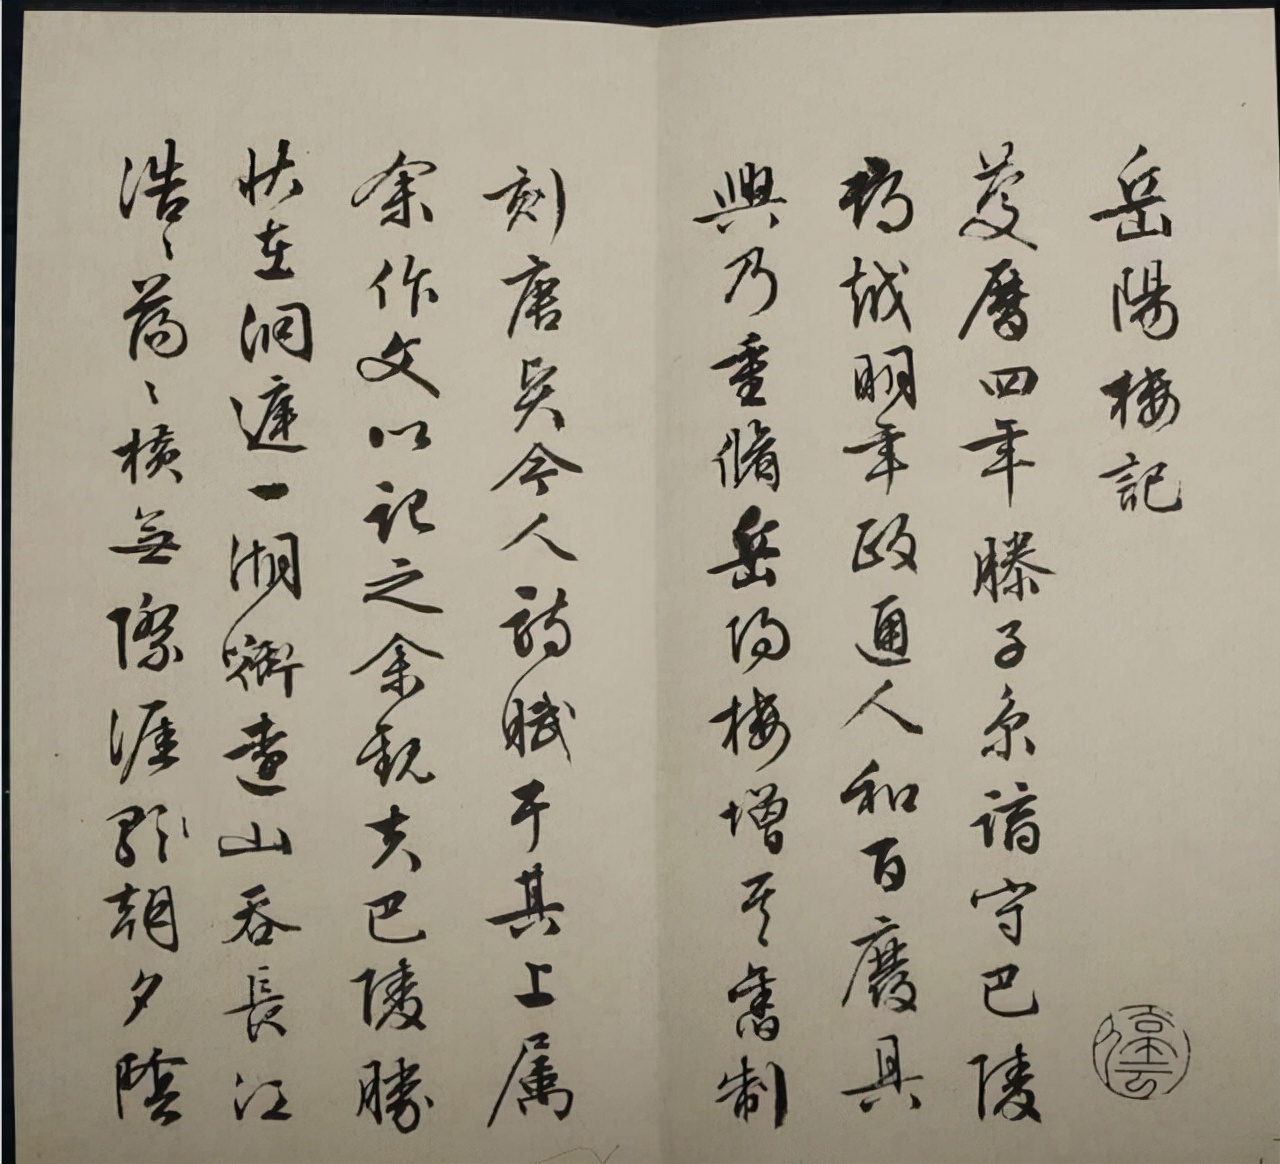 岳陽樓記
慶曆四年滕子京謫守巴陵
郡越明年政通人和百廢具
興乃重脩岳陽樓增其舊制
刻唐賢今人詩賦于其上屬
余作文以記之余觀夫巴陵勝
狀在洞庭一湖銜遠山吞長江
浩〻蕩〻橫無際涯暉朝夕陰